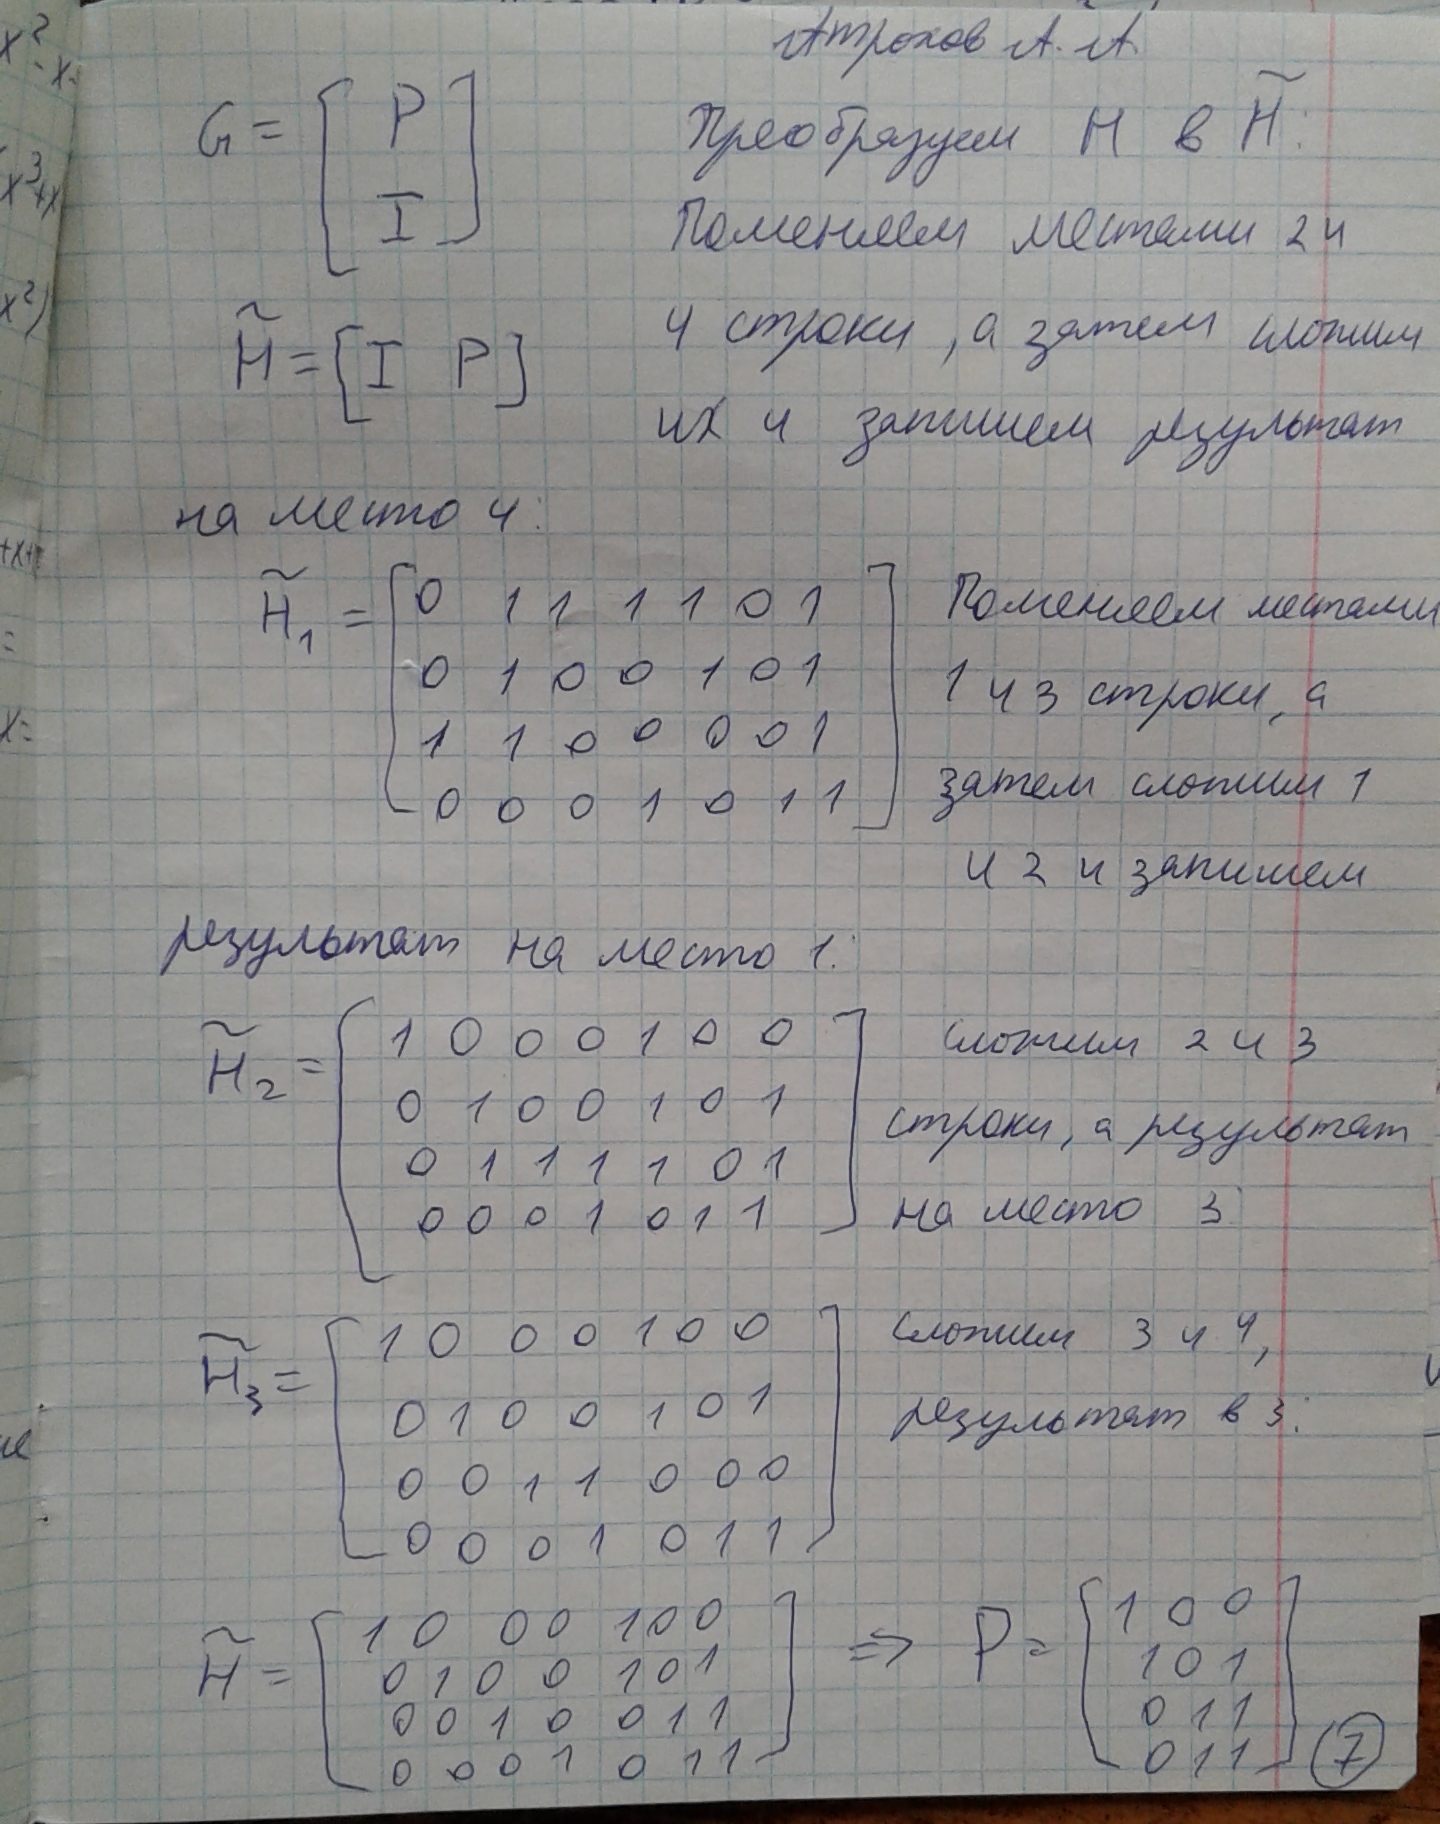 Атрохов А. А.
G = [ P
I ]
Преобразуем H в H̃:
Поменяем местами 2 и
H̃ = [ I P ]
4 строки, а затем сложим
их и запишем результат
на место 4:
H̃₁ = [ 0 1 1 1 1 0 1
0 1 0 0 1 0 1
1 1 0 0 0 0 1
0 0 0 1 0 1 1 ]
Поменяем местами
1 и 3 строки, а
затем сложим 1
и 2 и запишем
результат на место 1:
H̃₂ = [ 1 0 0 0 1 0 0
0 1 0 0 1 0 1
0 1 1 1 1 0 1
0 0 0 1 0 1 1 ]
Сложим 2 и 3
строки, а результат
на место 3:
H̃₃ = [ 1 0 0 0 1 0 0
0 1 0 0 1 0 1
0 0 1 1 0 0 0
0 0 0 1 0 1 1 ]
Сложим 3 и 4,
результат в 3:
H̃ = [ 1 0 0 0 1 0 0
0 1 0 0 1 0 1
0 0 1 0 0 1 1
0 0 0 1 0 1 1 ]
=> P = [ 1 0 0
1 0 1
0 1 1
0 1 1 ]
7